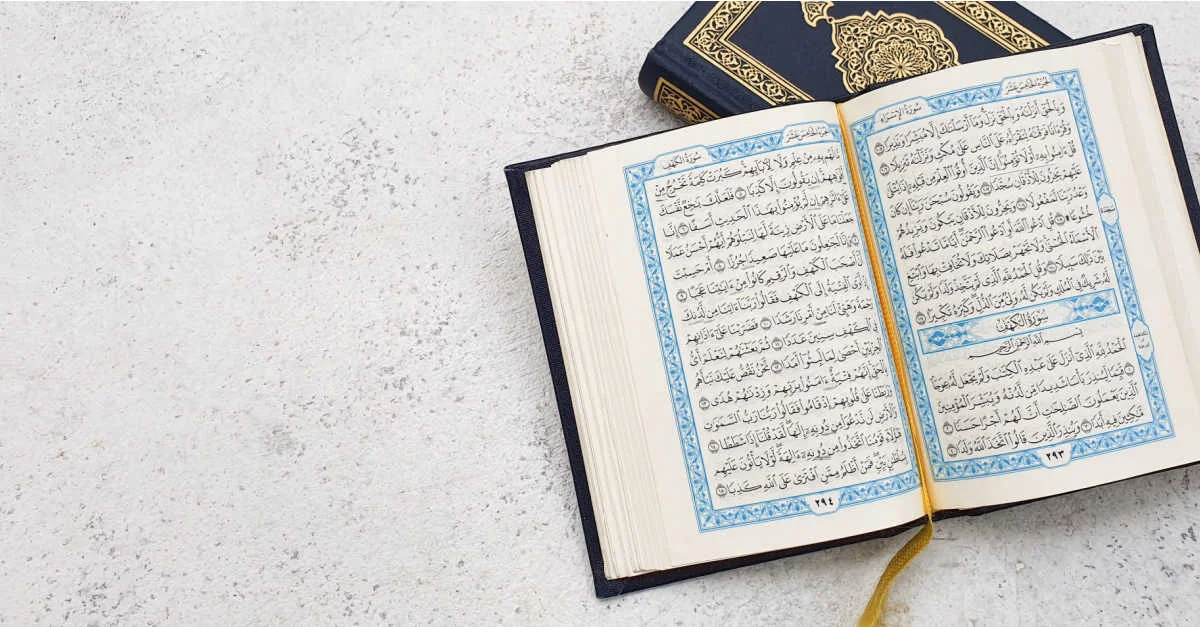 الجزء الخامس عشر
سورة الإسراء
وَبِالْحَقِّ أَنزَلْنَٰهُ وَبِالْحَقِّ نَزَلَ وَمَا أَرْسَلْنَٰكَ إِلَّا مُبَشِّرًا وَنَذِيرًا ١٠٥
وَقُرْءَانًا فَرَقْنَٰهُ لِتَقْرَأَهُ عَلَى النَّاسِ عَلَىٰ مُكْثٍ وَنَزَّلْنَٰهُ تَنزِيلًا ١٠٦
قُلْ ءَامِنُوا بِهِ أَوْ لَا تُؤْمِنُوا إِنَّ الَّذِينَ أُوتُوا الْعِلْمَ مِن قَبْلِهِ إِذَا يُتْلَىٰ
عَلَيْهِمْ يَخِرُّونَ لِلْأَذْقَانِ سُجَّدًا ١٠٧ وَيَقُولُونَ سُبْحَٰنَ رَبِّنَا إِن كَانَ
وَعْدُ رَبِّنَا لَمَفْعُولًا ١٠٨ وَيَخِرُّونَ لِلْأَذْقَانِ يَبْكُونَ وَيَزِيدُهُمْ
خُشُوعًا ۩ ١٠٩ قُلِ ادْعُوا اللَّهَ أَوِ ادْعُوا الرَّحْمَٰنَ أَيًّا مَّا تَدْعُوا فَلَهُ
الْأَسْمَاءُ الْحُسْنَىٰ وَلَا تَجْهَرْ بِصَلَاتِكَ وَلَا تُخَافِتْ بِهَا وَابْتَغِ
بَيْنَ ذَٰلِكَ سَبِيلًا ١١٠ وَقُلِ الْحَمْدُ لِلَّهِ الَّذِي لَمْ يَتَّخِذْ وَلَدًا وَلَمْ يَكُن
لَّهُ شَرِيكٌ فِي الْمُلْكِ وَلَمْ يَكُن لَّهُ وَلِيٌّ مِّنَ الذُّلِّ وَكَبِّرْهُ تَكْبِيرًا ١١١
سورة الكهف
بِسْمِ اللَّهِ الرَّحْمَٰنِ الرَّحِيمِ
الْحَمْدُ لِلَّهِ الَّذِي أَنزَلَ عَلَىٰ عَبْدِهِ الْكِتَٰبَ وَلَمْ يَجْعَل لَّهُ عِوَجًا
١ قَيِّمًا لِّيُنذِرَ بَأْسًا شَدِيدًا مِّن لَّدُنْهُ وَيُبَشِّرَ الْمُؤْمِنِينَ
الَّذِينَ يَعْمَلُونَ الصَّٰلِحَٰتِ أَنَّ لَهُمْ أَجْرًا حَسَنًا ٢
مَّٰكِثِينَ فِيهِ أَبَدًا ٣ وَيُنذِرَ الَّذِينَ قَالُوا اتَّخَذَ اللَّهُ وَلَدًا ٤
السجدة
٢٩٣
الجزء الخامس عشر
سورة الكهف
مَّا لَهُم بِهِ مِنْ عِلْمٍ وَلَا لِءَابَائِهِمْ كَبُرَتْ كَلِمَةً تَخْرُجُ مِنْ
أَفْوَٰهِهِمْ إِن يَقُولُونَ إِلَّا كَذِبًا ٥ فَلَعَلَّكَ بَٰخِعٌ نَّفْسَكَ
عَلَىٰ ءَاثَٰرِهِمْ إِن لَّمْ يُؤْمِنُوا بِهَٰذَا الْحَدِيثِ أَسَفًا ٦ إِنَّا
جَعَلْنَا مَا عَلَى الْأَرْضِ زِينَةً لَّهَا لِنَبْلُوَهُمْ أَيُّهُمْ أَحْسَنُ عَمَلًا
٧ وَإِنَّا لَجَٰعِلُونَ مَا عَلَيْهَا صَعِيدًا جُرُزًا ٨ أَمْ حَسِبْتَ
أَنَّ أَصْحَٰبَ الْكَهْفِ وَالرَّقِيمِ كَانُوا مِنْ ءَايَٰتِنَا عَجَبًا ٩
إِذْ أَوَى الْفِتْيَةُ إِلَى الْكَهْفِ فَقَالُوا رَبَّنَا ءَاتِنَا مِن لَّدُنكَ
رَحْمَةً وَهَيِّئْ لَنَا مِنْ أَمْرِنَا رَشَدًا ١٠ فَضَرَبْنَا عَلَىٰ ءَاذَانِهِمْ
فِي الْكَهْفِ سِنِينَ عَدَدًا ١١ ثُمَّ بَعَثْنَٰهُمْ لِنَعْلَمَ أَيُّ
الْحِزْبَيْنِ أَحْصَىٰ لِمَا لَبِثُوا أَمَدًا ١٢ نَّحْنُ نَقُصُّ عَلَيْكَ نَبَأَهُم
بِالْحَقِّ إِنَّهُمْ فِتْيَةٌ ءَامَنُوا بِرَبِّهِمْ وَزِدْنَٰهُمْ هُدًى ١٣
وَرَبَطْنَا عَلَىٰ قُلُوبِهِمْ إِذْ قَامُوا فَقَالُوا رَبُّنَا رَبُّ السَّمَٰوَٰتِ
وَالْأَرْضِ لَن نَّدْعُوَا مِن دُونِهِ إِلَٰهًا لَّقَدْ قُلْنَا إِذًا شَطَطًا ١٤
هَٰؤُلَاءِ قَوْمُنَا اتَّخَذُوا مِن دُونِهِ ءَالِهَةً لَّوْلَا يَأْتُونَ عَلَيْهِم
بِسُلْطَٰنٍ بَيِّنٍ فَمَنْ أَظْلَمُ مِمَّنِ افْتَرَىٰ عَلَى اللَّهِ كَذِبًا ١٥
٢٩٤